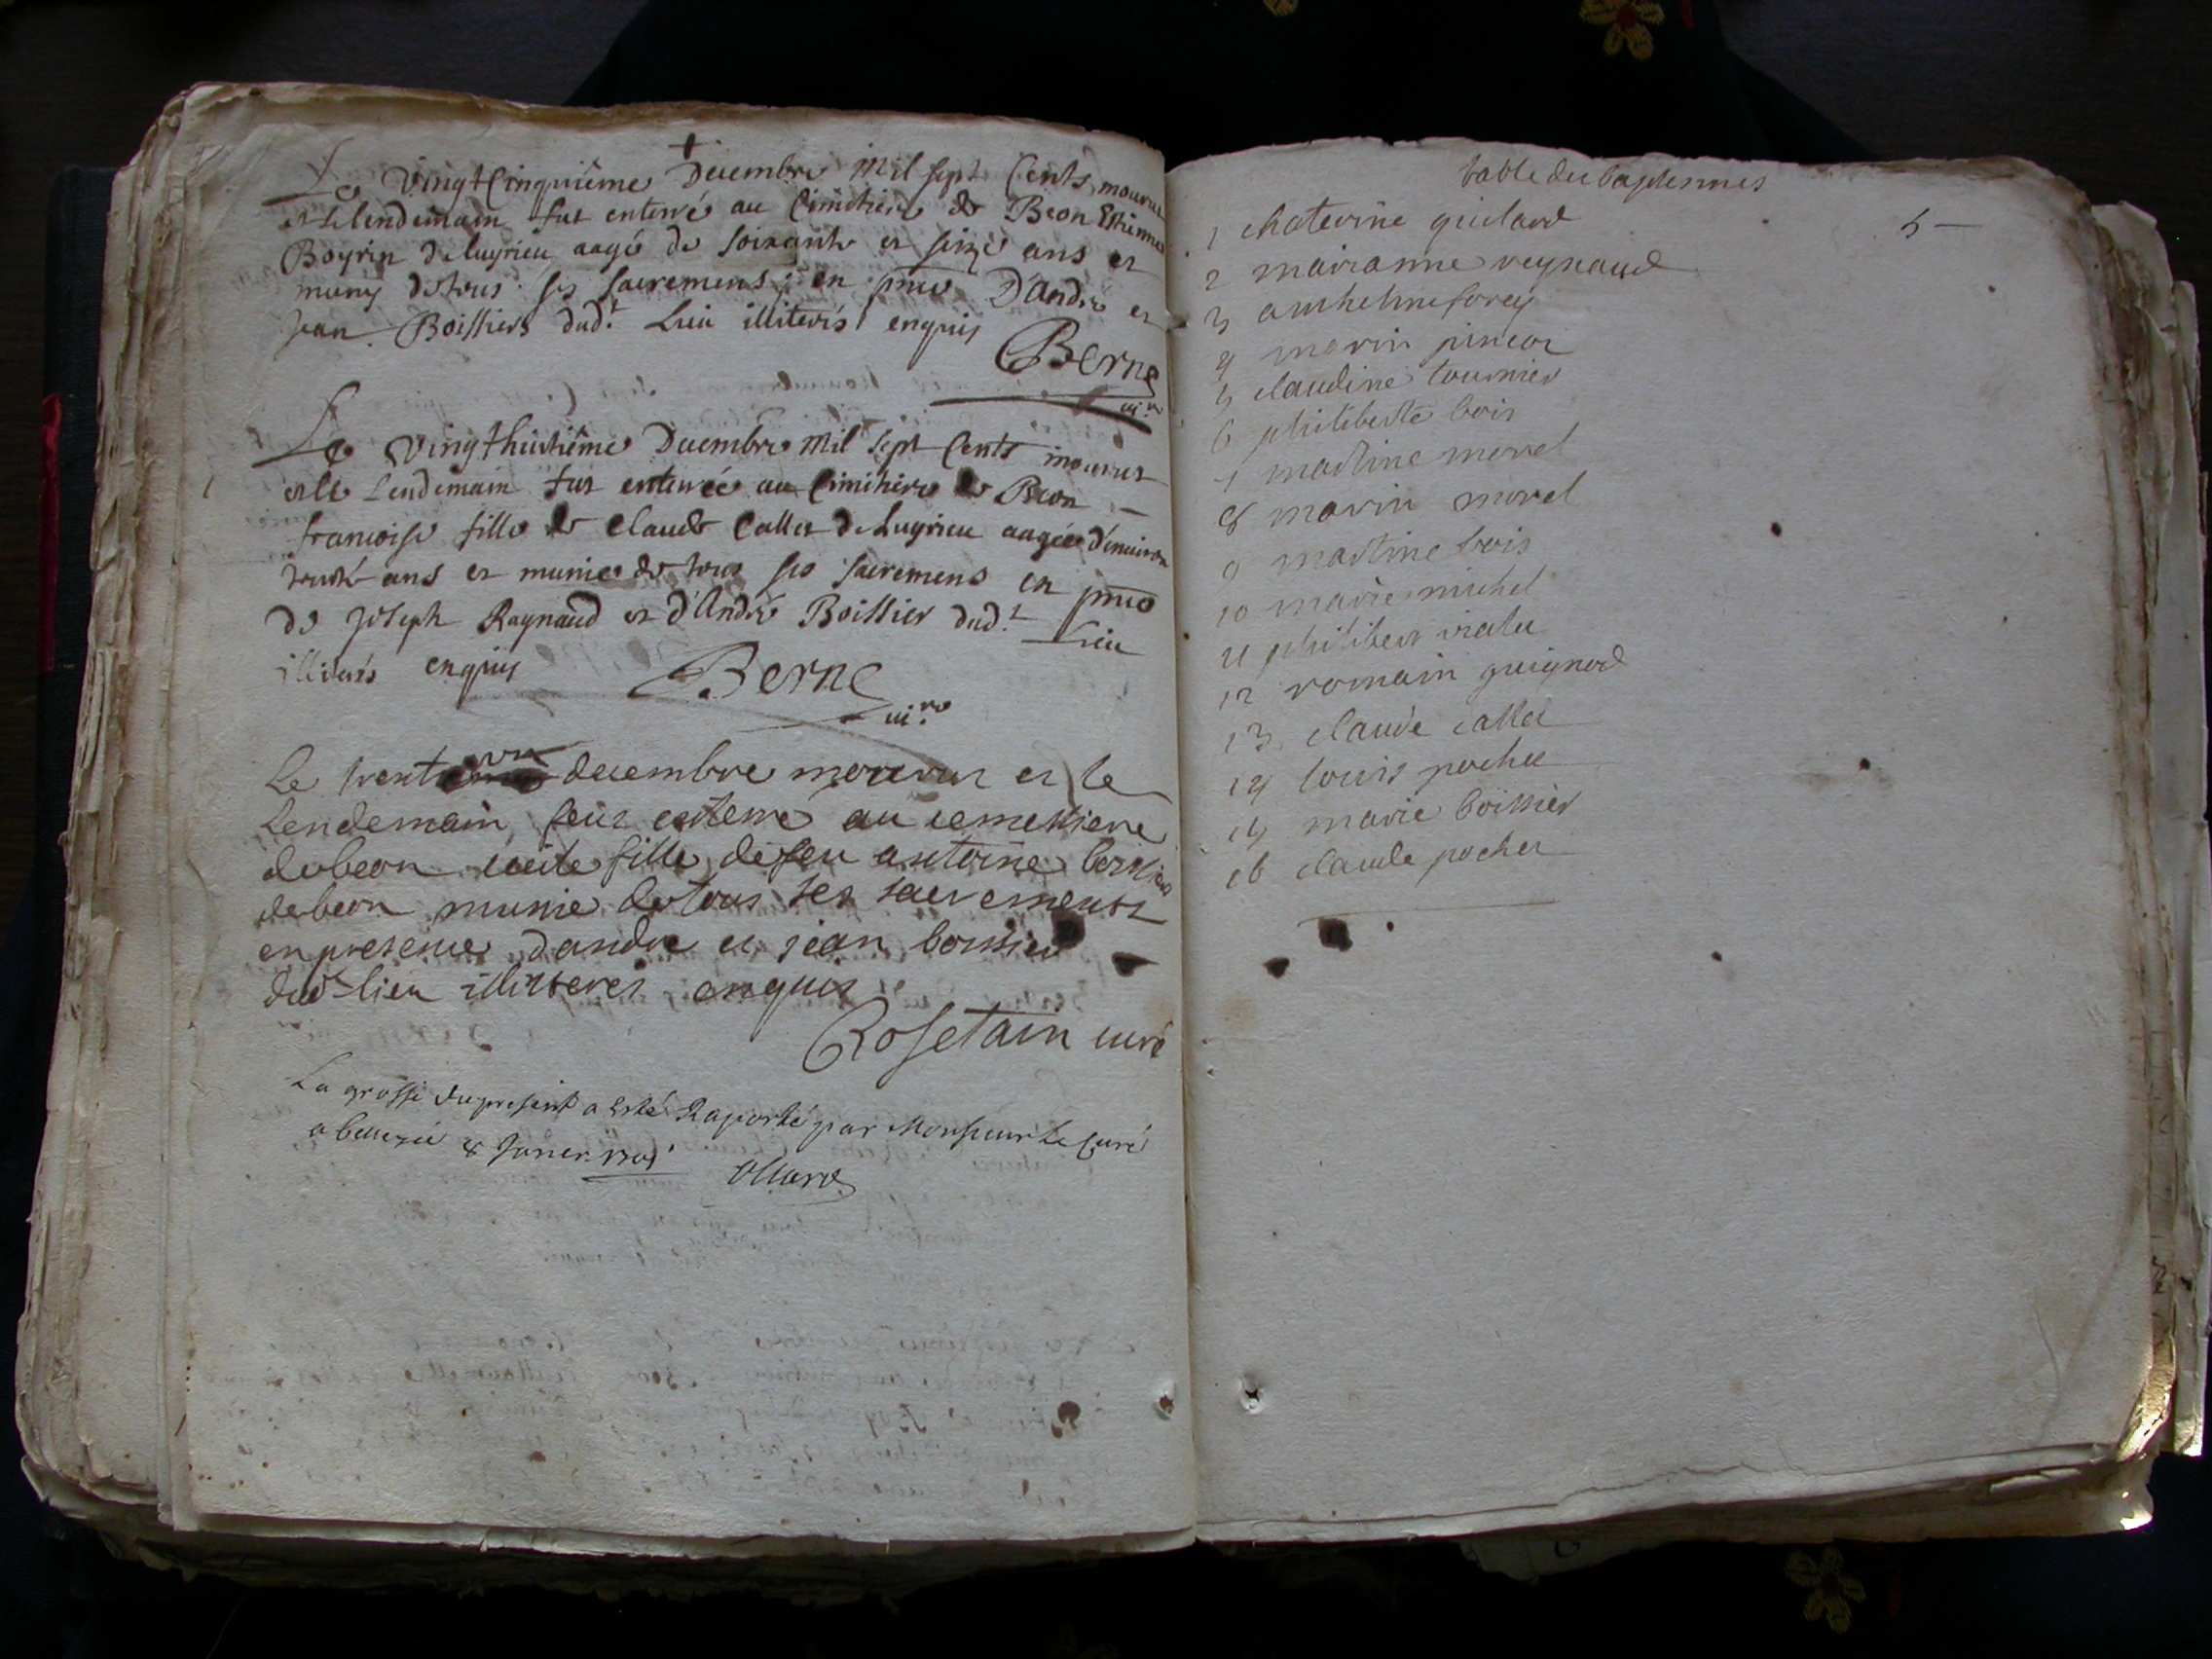 +
Le Vingt Cinquiême Decembre Mil sept Cents mourut
et le lendemain fut enterré au Cimitiere de Beon Estienne
Boyrin de Luyrieu aagé de soixante et seize ans et
muny de tous ses sacremens, en pnce D'André et
Jean Boissiers dud.t Lieu illiterés enquis
Berne
vi.re
Le Vingt huitiême Decembre Mil Sept Cents mourut
et le Lendemain fut enterrée au Cimitiere de Beon
francoise fille de Claude Callet de Luyrieu aagée d'environ
trente ans et munie de tous ses sacremens en pnce
de Joseph Raynaud et d'André Boissier dud.t Lieu
illiterés enquis
Berne
vi.re
Le trente un decembre mourut et le
Lendemain feut enterré au cemettiere
de beon fille de feu antoine
de beon munie de tous ses sacrements
en presence dandre et jean boissier
dud lieu illitteres enquis
Rosetain curé
La grosse du present a Esté Raporté par Monsieur Le Curé
a 8 Janer. 1701
Ollard
table des baptesmes
5
1 chaterine guilard
2 marianne reynaud
3 anthelme forey
4 marin
5 claudine tournier
6 philiberte bois
7 martine morel
8 marin morel
9 martine bois
10 marie michel
11 philibert
12 romain guignard
13 claude callet
14 louis pochet
15 marie boissier
16 claude pochet